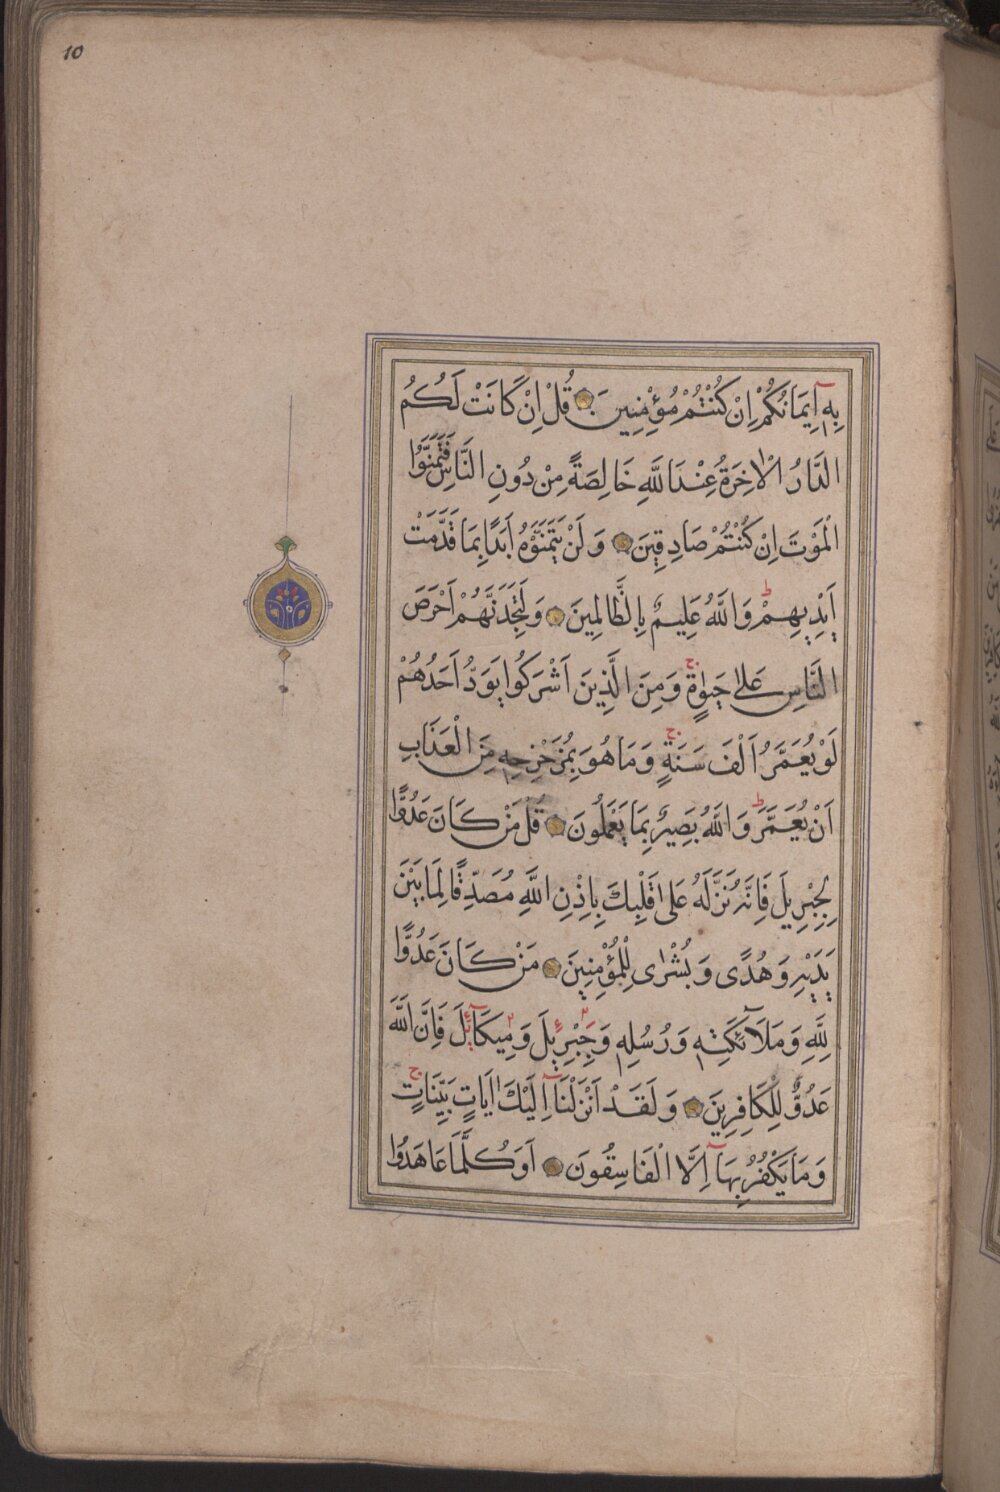 10
بِهِ اِيمَانُكُمْ اِنْ كُنْتُمْ مُؤْمِنِينَ قُلْ اِنْ كَانَتْ لَكُمُ
الدَّارُ الْاٰخِرَةُ عِنْدَ اللّٰهِ خَالِصَةً مِنْ دُونِ النَّاسِ فَتَمَنَّوُا
الْمَوْتَ اِنْ كُنْتُمْ صَادِقِينَ وَلَنْ يَتَمَنَّوْهُ اَبَدًا بِمَا قَدَّمَتْ
اَيْدِيهِمْ ط وَاللّٰهُ عَلِيمٌ بِالظَّالِمِينَ وَلَتَجِدَنَّهُمْ اَحْرَصَ
النَّاسِ عَلٰى حَيٰوةٍ ج وَمِنَ الَّذِينَ اَشْرَكُوا يَوَدُّ اَحَدُهُمْ
لَوْ يُعَمَّرُ اَلْفَ سَنَةٍ ج وَمَا هُوَ بِمُزَحْزِحِهِ مِنَ الْعَذَابِ
اَنْ يُعَمَّرَ ط وَاللّٰهُ بَصِيرٌ بِمَا يَعْمَلُونَ قُلْ مَنْ كَانَ عَدُوًّا
لِجِبْرِيلَ فَاِنَّهُ نَزَّلَهُ عَلٰى قَلْبِكَ بِاِذْنِ اللّٰهِ مُصَدِّقًا لِمَا بَيْنَ
يَدَيْهِ وَهُدًى وَبُشْرٰى لِلْمُؤْمِنِينَ مَنْ كَانَ عَدُوًّا
لِلّٰهِ وَمَلَآئِكَتِهِ وَرُسُلِهِ وَجِبْرِيلَ وَمِيكَآئِلَ فَاِنَّ اللّٰهَ
عَدُوٌّ لِلْكَافِرِينَ وَلَقَدْ اَنْزَلْنَآ اِلَيْكَ اٰيَاتٍ بَيِّنَاتٍ ج
وَمَا يَكْفُرُ بِهَآ اِلَّا الْفَاسِقُونَ اَوَكُلَّمَا عَاهَدُوا